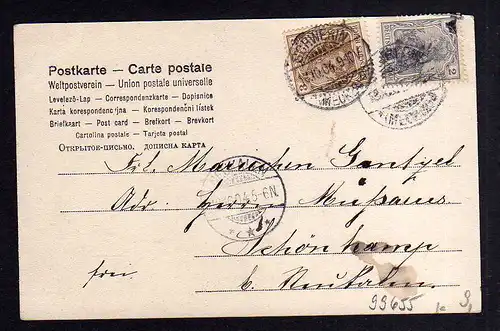 Postkarte — Carte postale
Weltpostverein — Union postale universelle
Levelező-Lap — Correspondenzkarte — Dopisnice
Karta korespondencyjna — Korespondenční lístek
Briefkaart — Post card — Brefkort — Brevkort
Cartolina postale — Tarjeta postal
ОТКРЫТОЕ-ПИСЬМО. ДОПИСНА КАРТА
SCHWERIN
(MECKLB.)
2
Frl.
Adr. Herrn Musaeus
Schönkamp
b. Neukalen
frei.
99655